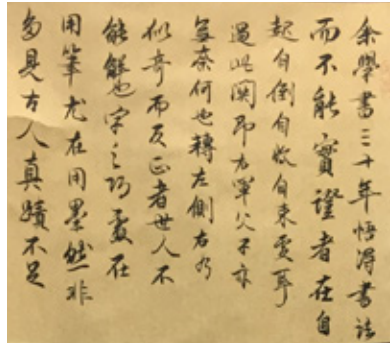 余學書三十年悟得書法
而不能實證者在自
起自倒自收自束處耳
過此關即右軍父子亦
無奈何也轉左側右乃
似奇而反正者世人不
能解也字之巧處在
用筆尤在用墨然非
多見古人真蹟不足